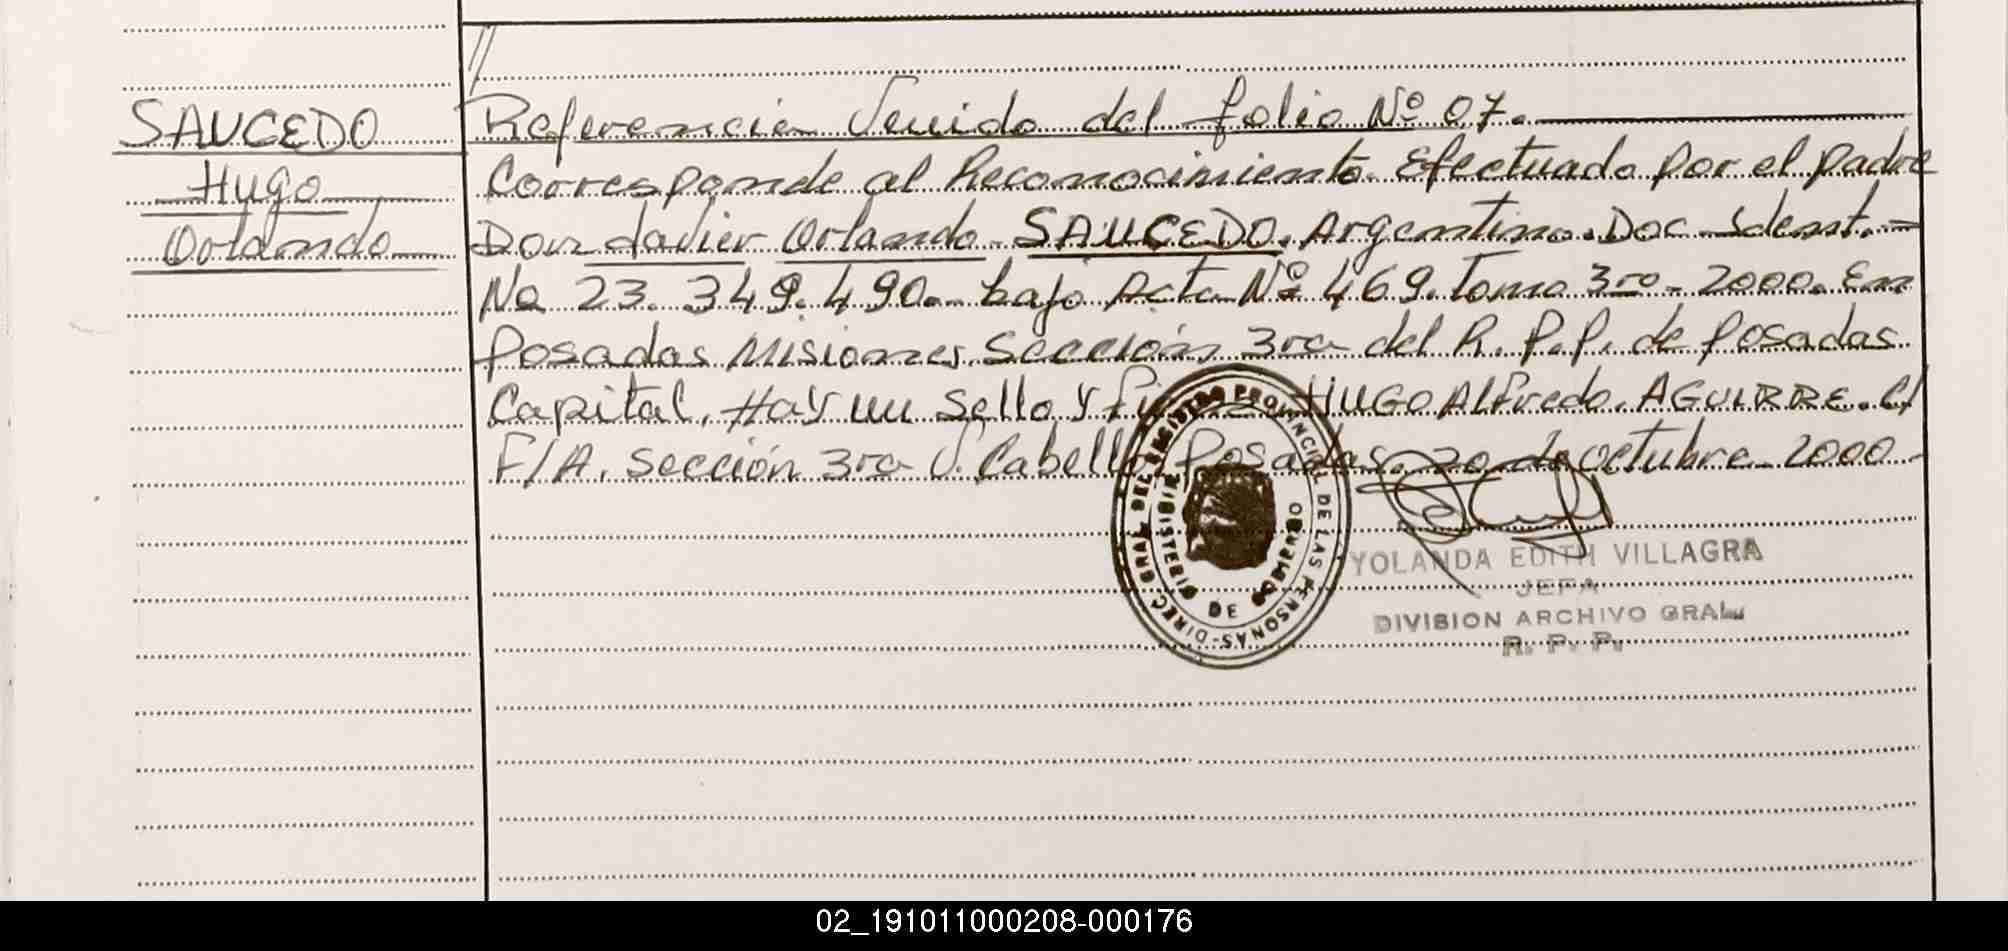 //
SAUCEDO
Hugo
Orlando
Referencia Venido del folio Nº 07.
Corresponde al Reconocimiento. Efectuado por el padre
Don Javier Orlando SAUCEDO. Argentino. Doc Ident.-
No 23.349.490. bajo Acta Nº 469. Tomo 3ro - 2000. En
Posadas Misiones Sección 3ra del R.P.P. de Posadas
Capital. Hay un Sello y Firma HUGO Alfredo. AGUIRRE. C/
F/A. Sección 3ra V. Cabello. Posadas. 20 de Octubre 2000.
DIREC. GRAL. DEL REGISTRO PROVINCIAL DE LAS PERSONAS
DE
YOLANDA EDITH VILLAGRA
JEFA
DIVISION ARCHIVO GRAL.
R. P. P.
02_191011000208-000176